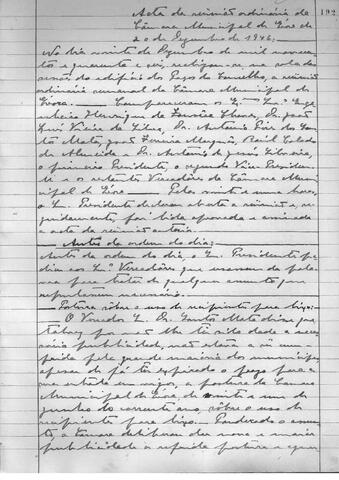 192
Acta da reunião ordinária da
Câmara Municipal de Évora de
20 de Dezembro de 1946.
No dia vinte de Dezembro de mil novecen-
tos e quarenta e seis, realizou-se na sala das
sessões do edifício dos Paços do Concelho, a reunião
ordinária semanal da Câmara Municipal de
Évora. Compareceram os
Henrique da Chaves, Dr. João
Luís Vieira da Silva, Dr. António
Mata, João Raúl
de Almeida e Dr. António
o primeiro Presidente, o segundo Vice-Presiden-
te e os restantes Vereadores da Câmara Muni-
cipal de Évora. Pelas vinte e uma horas,
o Presidente declarou aberta a reunião e, se-
guidamente foi lida aprovada e assinada
a acta da reunião anterior.
Antes da ordem do dia:
Antes da ordem do dia, o Presidente pe-
diu aos Vereadores que usassem da pala-
vra para tratar de qualquer assunto que
reputassem necessário.
Postura sôbre o uso de recipiente para lixo:
O Vereador Dr. Santos Mata disse que,
talvez por não lhe ter sido dada a neces-
sária publicidade, não está a ser cum-
prida pela grande maioria dos munícipes,
apesar de já ter expirado o prazo para a
sua entrada em vigor, a postura da Câmara
Municipal de Évora, de vinte e um de
Junho do corrente ano sôbre o uso de
recipiente para lixo. Ponderado o assun-
to, a Câmara deliberou dar nova e maior
publicidade à referida postura e